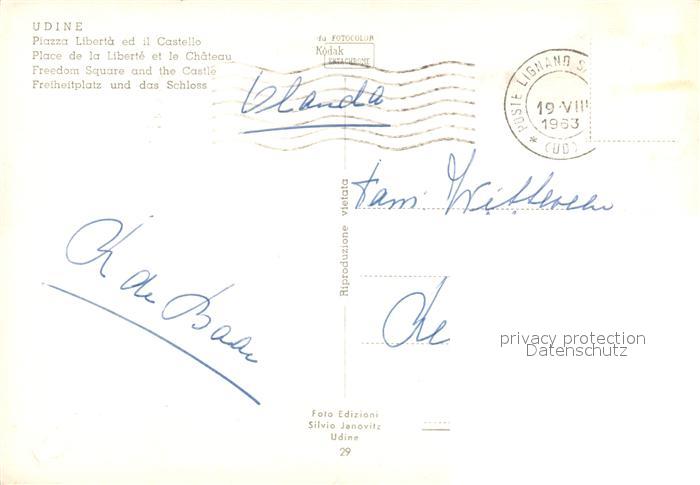 UDINE
Piazza Libertà ed il Castello
Place de la Liberté et le Château
Freedom Square and the Castle
Freiheitplatz und das Schloss
da FOTOCOLOR
Kodak
EKTACHROME
POSTE LIGNANO S
19·VIII
1963
* (UD)
Olanda
Fam
Riproduzione vietata
de
privacy protection
Datenschutz
Foto Edizioni
Silvio Janovitz
Udine
29